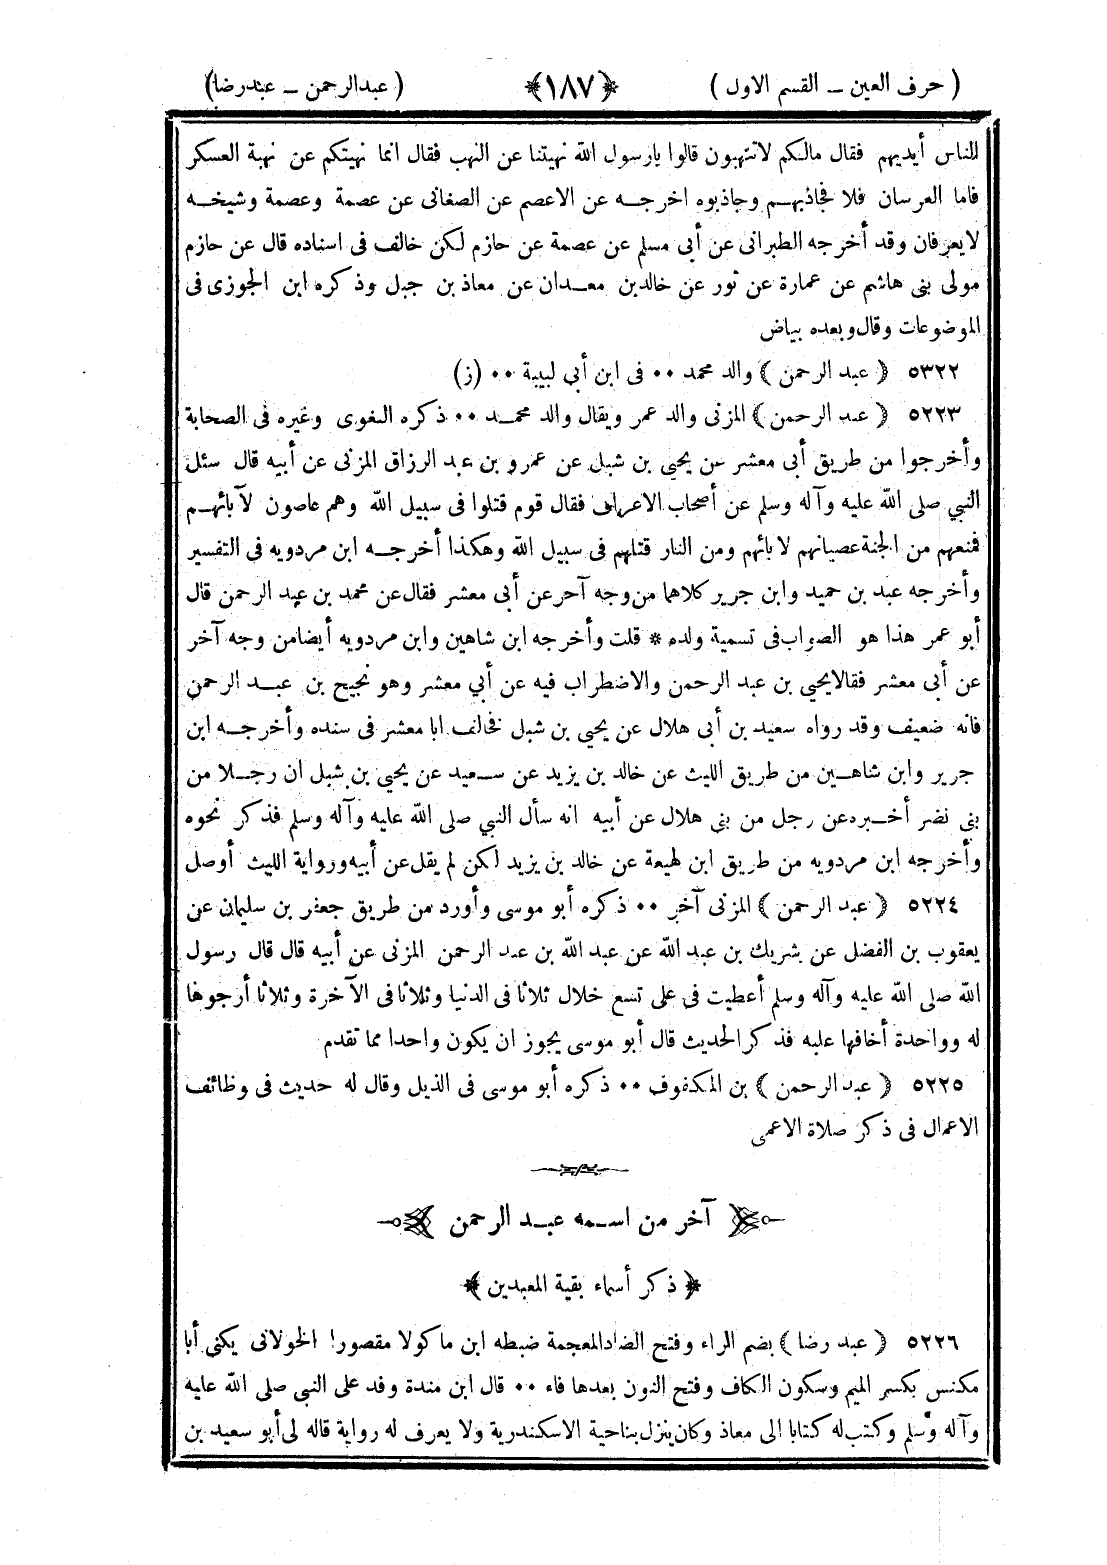 ( حرف العين – القسم الاول ) ﴿١٨٧﴾ ( عبدالرحمن – عبدرضا)
للناس أيديهم فقال مالكم لاتنتهبون قالوا يارسول الله نهيتنا عن النهب فقال انما نهيتكم عن نهبة العسكر
فاما العرسان فلا فجاذبهم وجاذبوه اخرجه عن الاعصم عن الصغانى عن عصمة وعصمة وشيخه
لايعرفان وقد أخرجه الطبرانى عن أبى مسلم عن عصمة عن حازم لكن خالف فى اسناده قال عن حازم
مولى بنى هاشم عن عمارة عن ثور عن خالدبن معدان عن معاذ بن جبل وذكره ابن الجوزى فى
الموضوعات وقال وبعده بياض
٥٣٢٢ ( عبد الرحمن ) والد محمد ٠٠ فى ابن أبي لبيبة ٠٠ (ز)
٥٢٢٣ ( عبد الرحمن ) المزنى والد عمر ويقال والد محمد ٠٠ ذكره البغوى وغيره فى الصحابة
وأخرجوا من طريق أبى معشر عن يحيى بن شبل عن عمرو بن عبد الرزاق المزنى عن أبيه قال سئل
النبي صلى الله عليه وآله وسلم عن أصحاب الاعراف فقال قوم قتلوا فى سبيل الله وهم عاصون لآبائهم
فمنعهم من الجنة عصيانهم لابائهم ومن النار قتلهم فى سبيل الله وهكذا أخرجه ابن مردويه فى التفسير
وأخرجه عبد بن حميد وابن جرير كلاهما من وجه آخر عن أبى معشر فقال عن محمد بن عبد الرحمن قال
أبو عمر هذا هو الصواب فى تسمية ولده * قلت وأخرجه ابن شاهين وابن مردويه أيضا من وجه آخر
عن أبى معشر فقالا يحيى بن عبد الرحمن والاضطراب فيه عن أبي معشر وهو نجيح بن عبد الرحمن
فانه ضعيف وقد رواه سعيد بن أبى هلال عن يحيى بن شبل فخالف ابا معشر فى سنده وأخرجه ابن
جرير وابن شاهين من طريق الليث عن خالد بن يزيد عن سعيد عن يحيى بن شبل ان رجلا من
بنى نضر أخبره عن رجل من بنى هلال عن أبيه انه سأل النبي صلى الله عليه وآله وسلم فذكر نحوه
وأخرجه ابن مردويه من طريق ابن لهيعة عن خالد بن يزيد لكن لم يقل عن أبيه ورواية الليث أوصل
٥٢٢٤ ( عبد الرحمن ) المزنى آخر ٠٠ ذكره أبو موسى وأورد من طريق جعفر بن سليمان عن
يعقوب بن الفضل عن شريك بن عبد الله عن عبد الله بن عبد الرحمن المزنى عن أبيه قال قال رسول
الله صلى الله عليه وآله وسلم أعطيت فى على تسع خلال ثلاثا فى الدنيا وثلاثا فى الآخرة وثلاثا أرجوها
له وواحدة أخافها عليه فذكر الحديث قال أبو موسى يجوز ان يكون واحدا مما تقدم
٥٢٢٥ ( عبد الرحمن ) بن المكفوف ٠٠ ذكره أبو موسى فى الذيل وقال له حديث فى وظائف
الاعمال فى ذكر صلاة الاعمى
آخر من اسمه عبد الرحمن
﴿ ذكر أسماء بقية المعبدين ﴾
٥٢٢٦ ( عبد رضا ) بضم الراء وفتح الضاد المعجمة ضبطه ابن ماكولا مقصورا الخولانى يكنى أبا
مكنس بكسر الميم وسكون الكاف وفتح النون بعدها فاء ٠٠ قال ابن مندة وفد على النبي صلى الله عليه
وآله وسلم وكتب له كتابا الى معاذ وكان ينزل بناحية الاسكندرية ولا يعرف له رواية قاله لى أبو سعيد بن